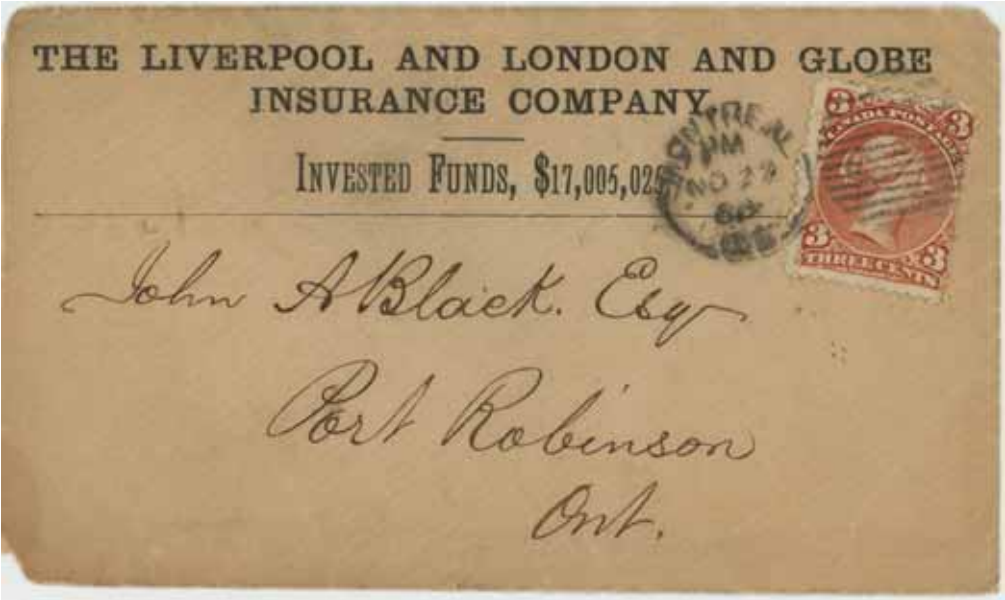 THE LIVERPOOL AND LONDON AND GLOBE
INSURANCE COMPANY
INVESTED FUNDS, $17,005,02
MONTREAL
PM
NO 29
68
3 3
CANADA POSTAGE
3 3
THREE CENTS
John A Black. Esq
Port Robinson
Ont.